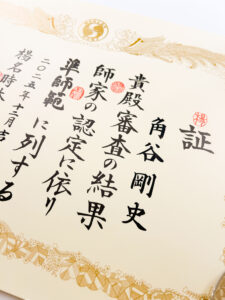 証
角谷剛史
貴殿審査の結果
師家の認定に依り
準師範に列する
二〇二五年十二月吉
楊名時太